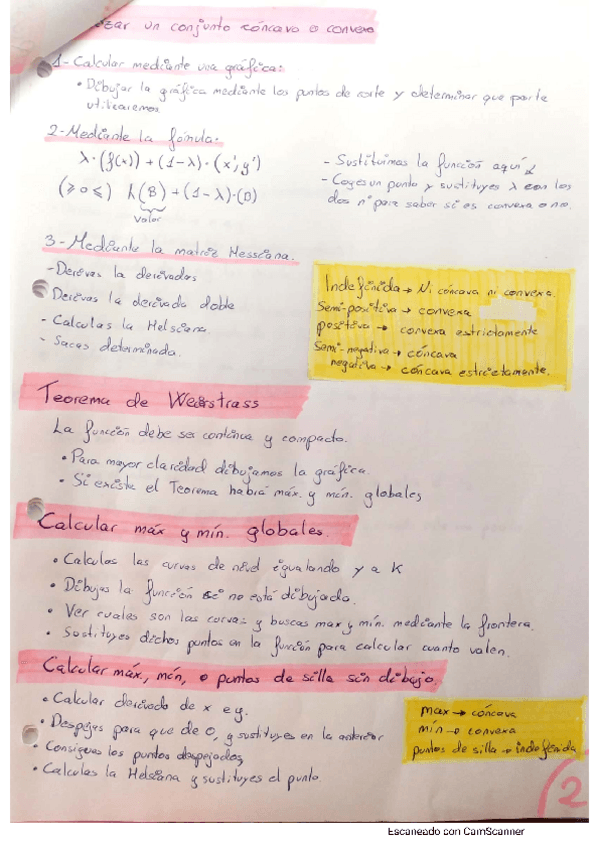 izar un conjunto cóncavo o convexo
1- Calcular mediante una gráfica:
• Dibujar la gráfica mediante los puntos de corte y determinar que parte
utilizaremos
2- Mediante la fórmula:
λ·(f(x)) + (1-λ)·(x', y')
(≥0≤) λ(B) + (1-λ)·(D)
valor
- Sustituimos la función aquí
- Coges un punto y sustituyes λ con los
dos nº para saber si es convexa o no.
3- Mediante la matriz Hessiana.
- Derivas la derivadas
Derivas la derivada doble
- Calculas la Helsiana
- Sacas determinada.
Indefinida → Ni cóncava ni convexa.
Semi-positiva → convexa
positiva → convexa estrictamente
Semi-negativa → cóncava
negativa → cóncava estrictamente.
Teorema de Weirstrass
La función debe ser continua y compacta.
• Para mayor claridad dibujamos la gráfica.
• Si existe el Teorema habrá máx. y mín. globales
Calcular máx y mín. globales.
• Calculas las curvas de nivel igualando y a K
• Dibujas la función si no está dibujada.
• Ver cuales son las curvas y buscas max y mín. mediante la frontera.
• Sustituyes dichos puntos en la función para calcular cuanto valen.
Calcular máx, mín, o puntos de silla sin dibujo.
• Calcular derivada de x e y.
• Despejas para que de 0, y sustituyes en la anterior
• Consigues los puntos despejados
• Calculas la Helsiana y sustituyes el punto
max → cóncava
mín → convexa
puntos de silla → indefinida
2
Escaneado con CamScanner